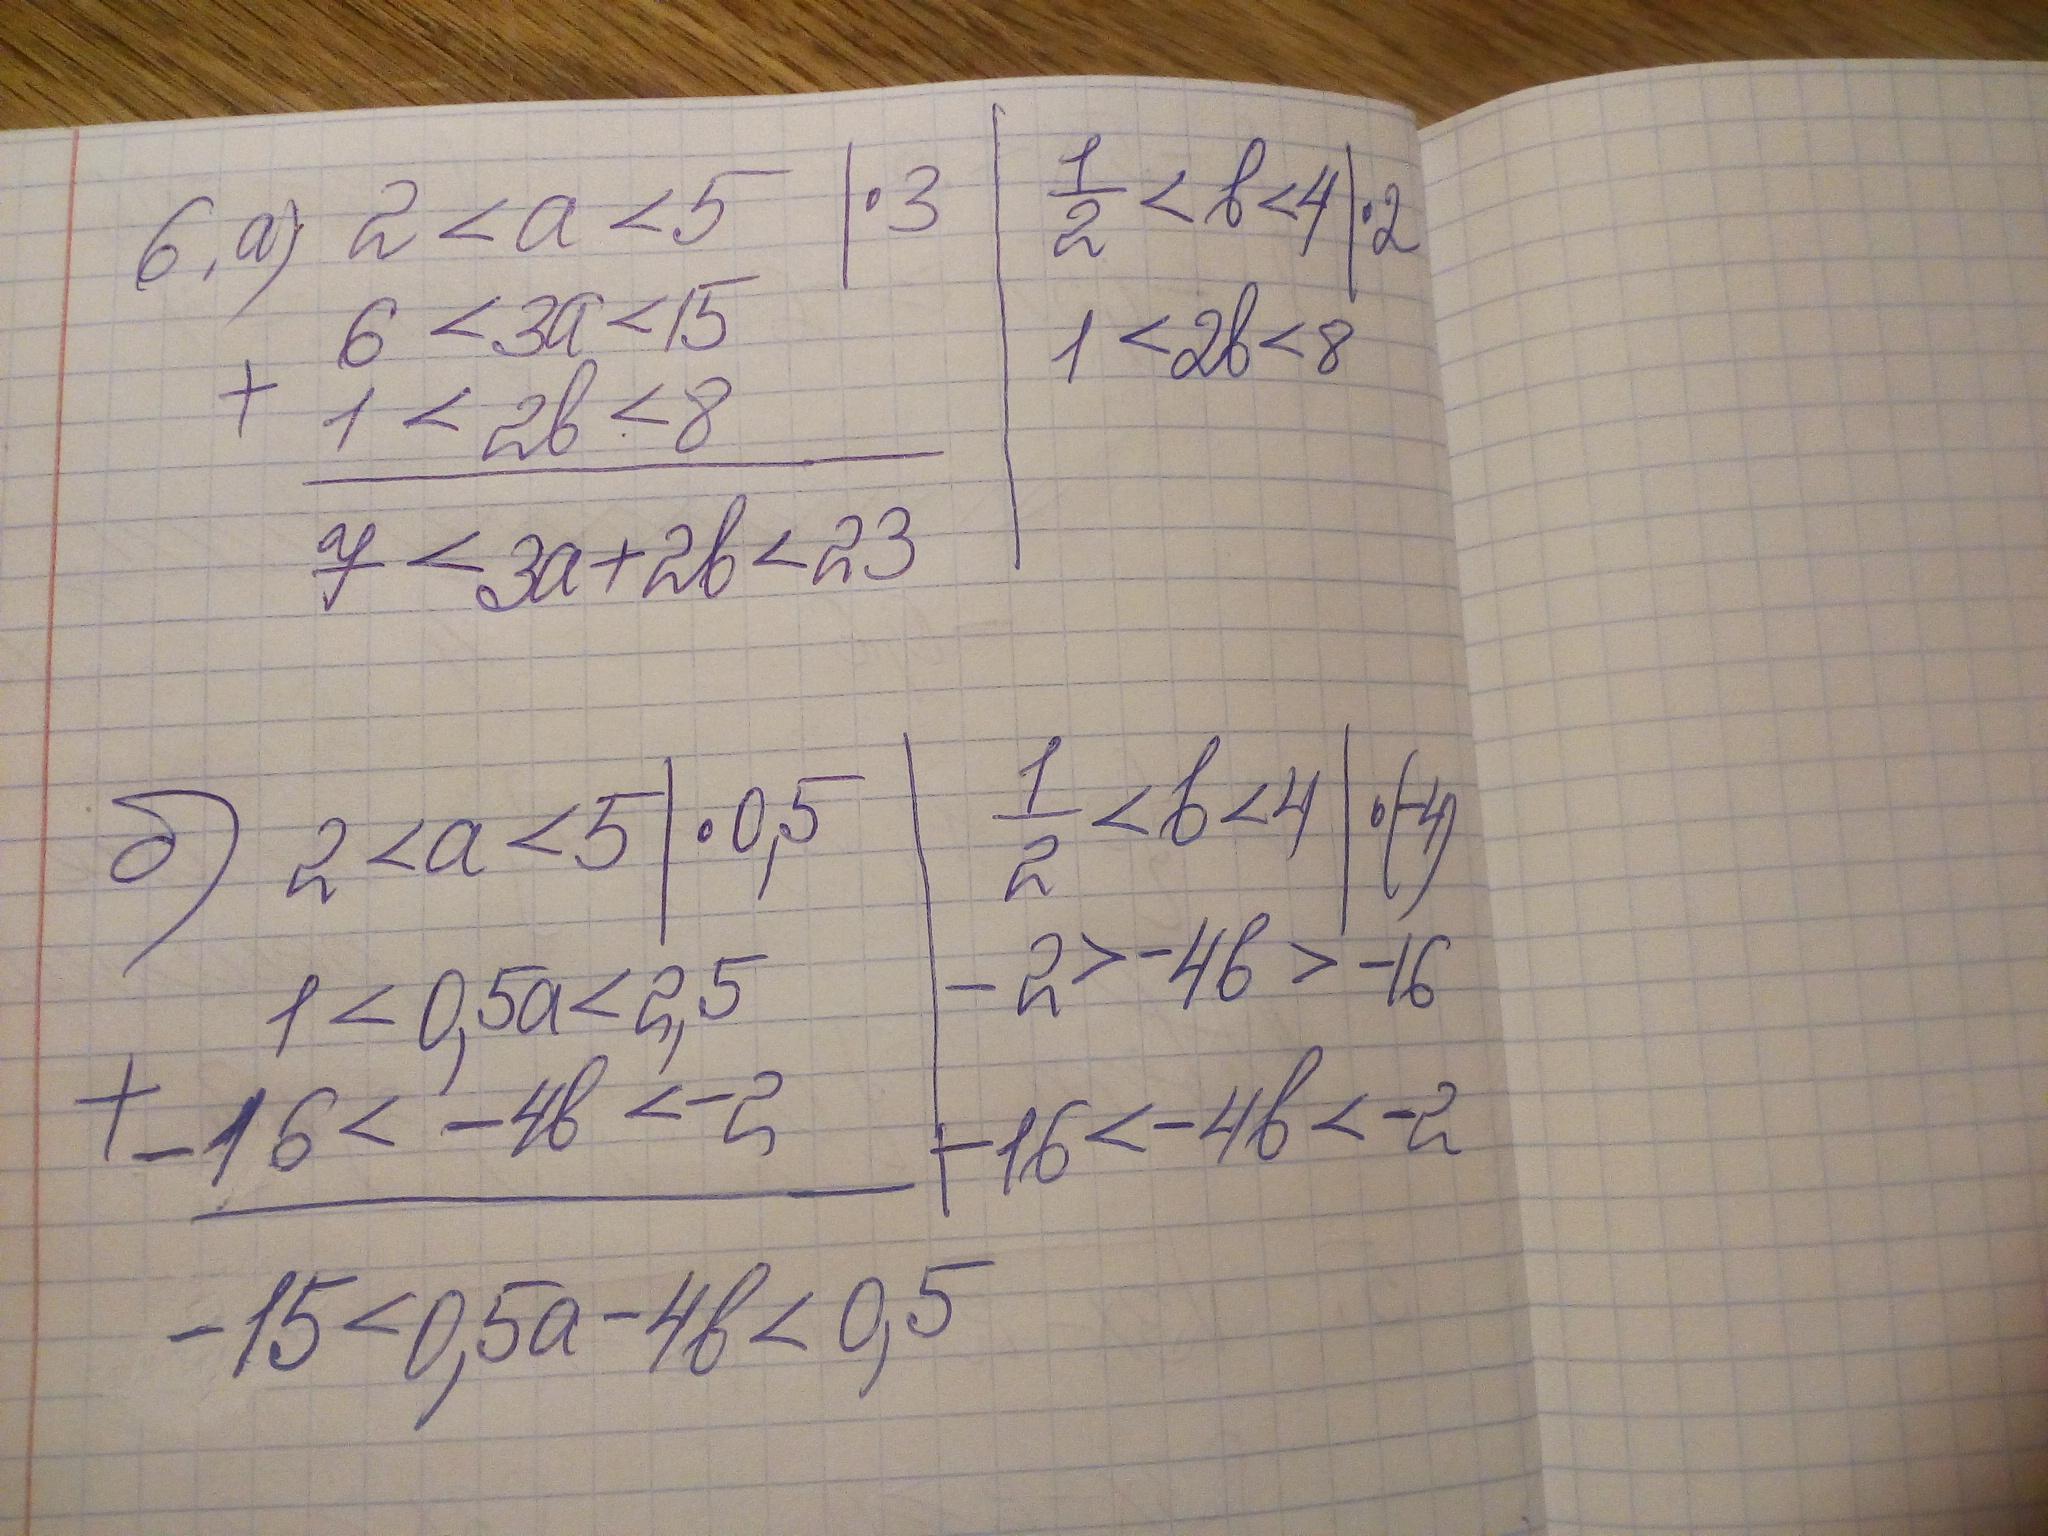 6.а) 2 < a < 5 | · 3
6 < 3a < 15
+ 1 < 2b < 8
7 < 3a + 2b < 23
1/2 < b < 4 | · 2
1 < 2b < 8
б) 2 < a < 5 | · 0,5
1 < 0,5a < 2,5
+ -16 < -4b < -2
-15 < 0,5a - 4b < 0,5
1/2 < b < 4 | · (-4)
-2 > -4b > -16
-16 < -4b < -2